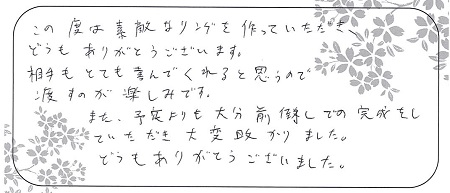 この度は素敵なリングを作っていただき、
どうもありがとうございます。
相手もとても喜んでくれると思うので
渡すのが楽しみです。
また、予定よりも大分前倒しでの完成をし
ていただき大変助かりました。
どうもありがとうございました。